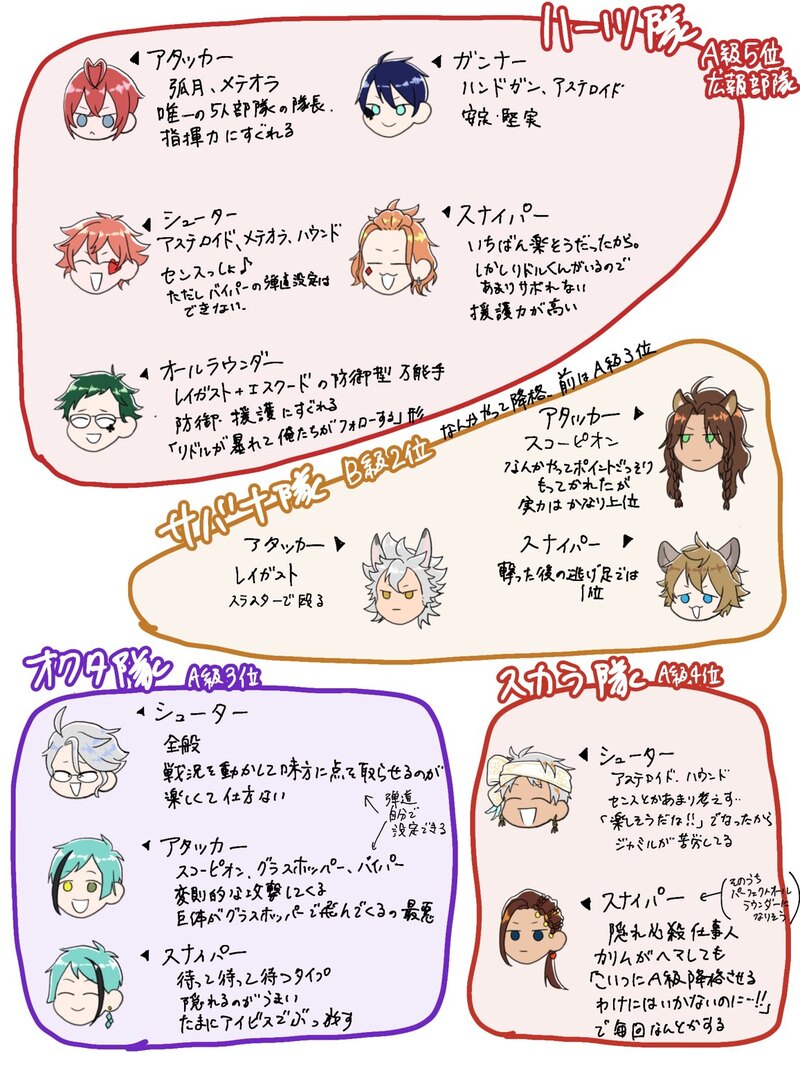 ハーツ隊
A級5位
広報部隊
アタッカー
弧月、メテオラ
唯一の5人部隊の隊長。
指揮力にすぐれる
ガンナー
ハンドガン、アステロイド
安定・堅実
シューター
アステロイド、メテオラ、ハウンド
センスっしょ♪
ただしバイパーの弾道設定は
できない。
スナイパー
いちばん楽そうだったから。
しかしリドルくんがいるので
あまりサボれない
援護力が高い
オールラウンダー
レイガスト+エスクードの防御型万能手
防御・援護にすぐれる
「リドルが暴れて俺たちがフォローする」形
サバナ隊 B級2位 なんかやって降格、前はA級3位
アタッカー
スコーピオン
なんかやってポイントごっそり
もってかれたが
実力はかなり上位
アタッカー
レイガスト
スラスターで殴る
スナイパー
撃った後の逃げ足では
1位
オクタ隊 A級3位
シューター
全般
戦況を動かして味方に点を取らせるのが
楽しくて仕方ない
弾道
自分で
設定できる
アタッカー
スコーピオン、グラスホッパー、バイパー
変則的な攻撃してくる
巨体がグラスホッパーで飛んでくるの最悪
スナイパー
待って待って待つタイプ
隠れるのがうまい
たまにアイビスでぶっ放す
スカラ隊 A級4位
シューター
アステロイド、ハウンド
センスとかあまり考えず…
「楽しそうだな!!」でなったから
ジャミルが苦労してる
スナイパー
そのうち
パーフェクトオール
ラウンダーに
なりそう
隠れ必殺仕事人
カリムがヘマしても
「こいつにA級降格させる
わけにはいかないのに…!!」
で毎回なんとかする